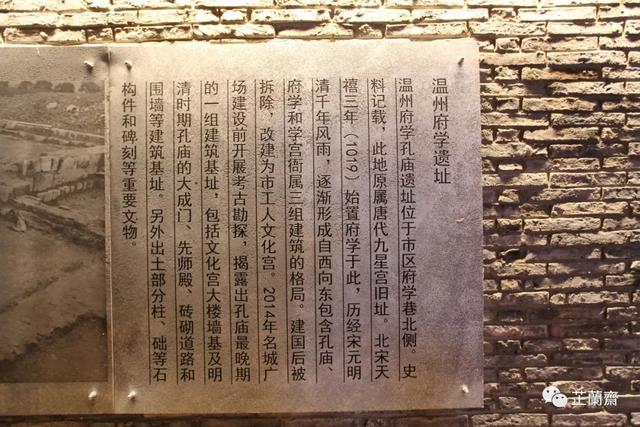 温州府学遗址
温州府学孔庙遗址位于市区府学巷北侧。史
料记载，此地原属唐代九星宫旧址。北宋天
禧三年（1019）始置府学于此，历经宋元明
清千年风雨，逐渐形成自西向东包含孔庙、
府学和学宫衙属三组建筑的格局。建国后被
拆除，改建为市工人文化宫。2014年名城广
场建设前开展考古勘探，揭露出孔庙最晚期
的一组建筑基址，包括文化宫大楼墙基及明
清时期孔庙的大成门、先师殿、砖砌道路和
围墙等建筑基址。另外出土部分柱、础等石
构件和碑刻等重要文物。
芷蘭齋